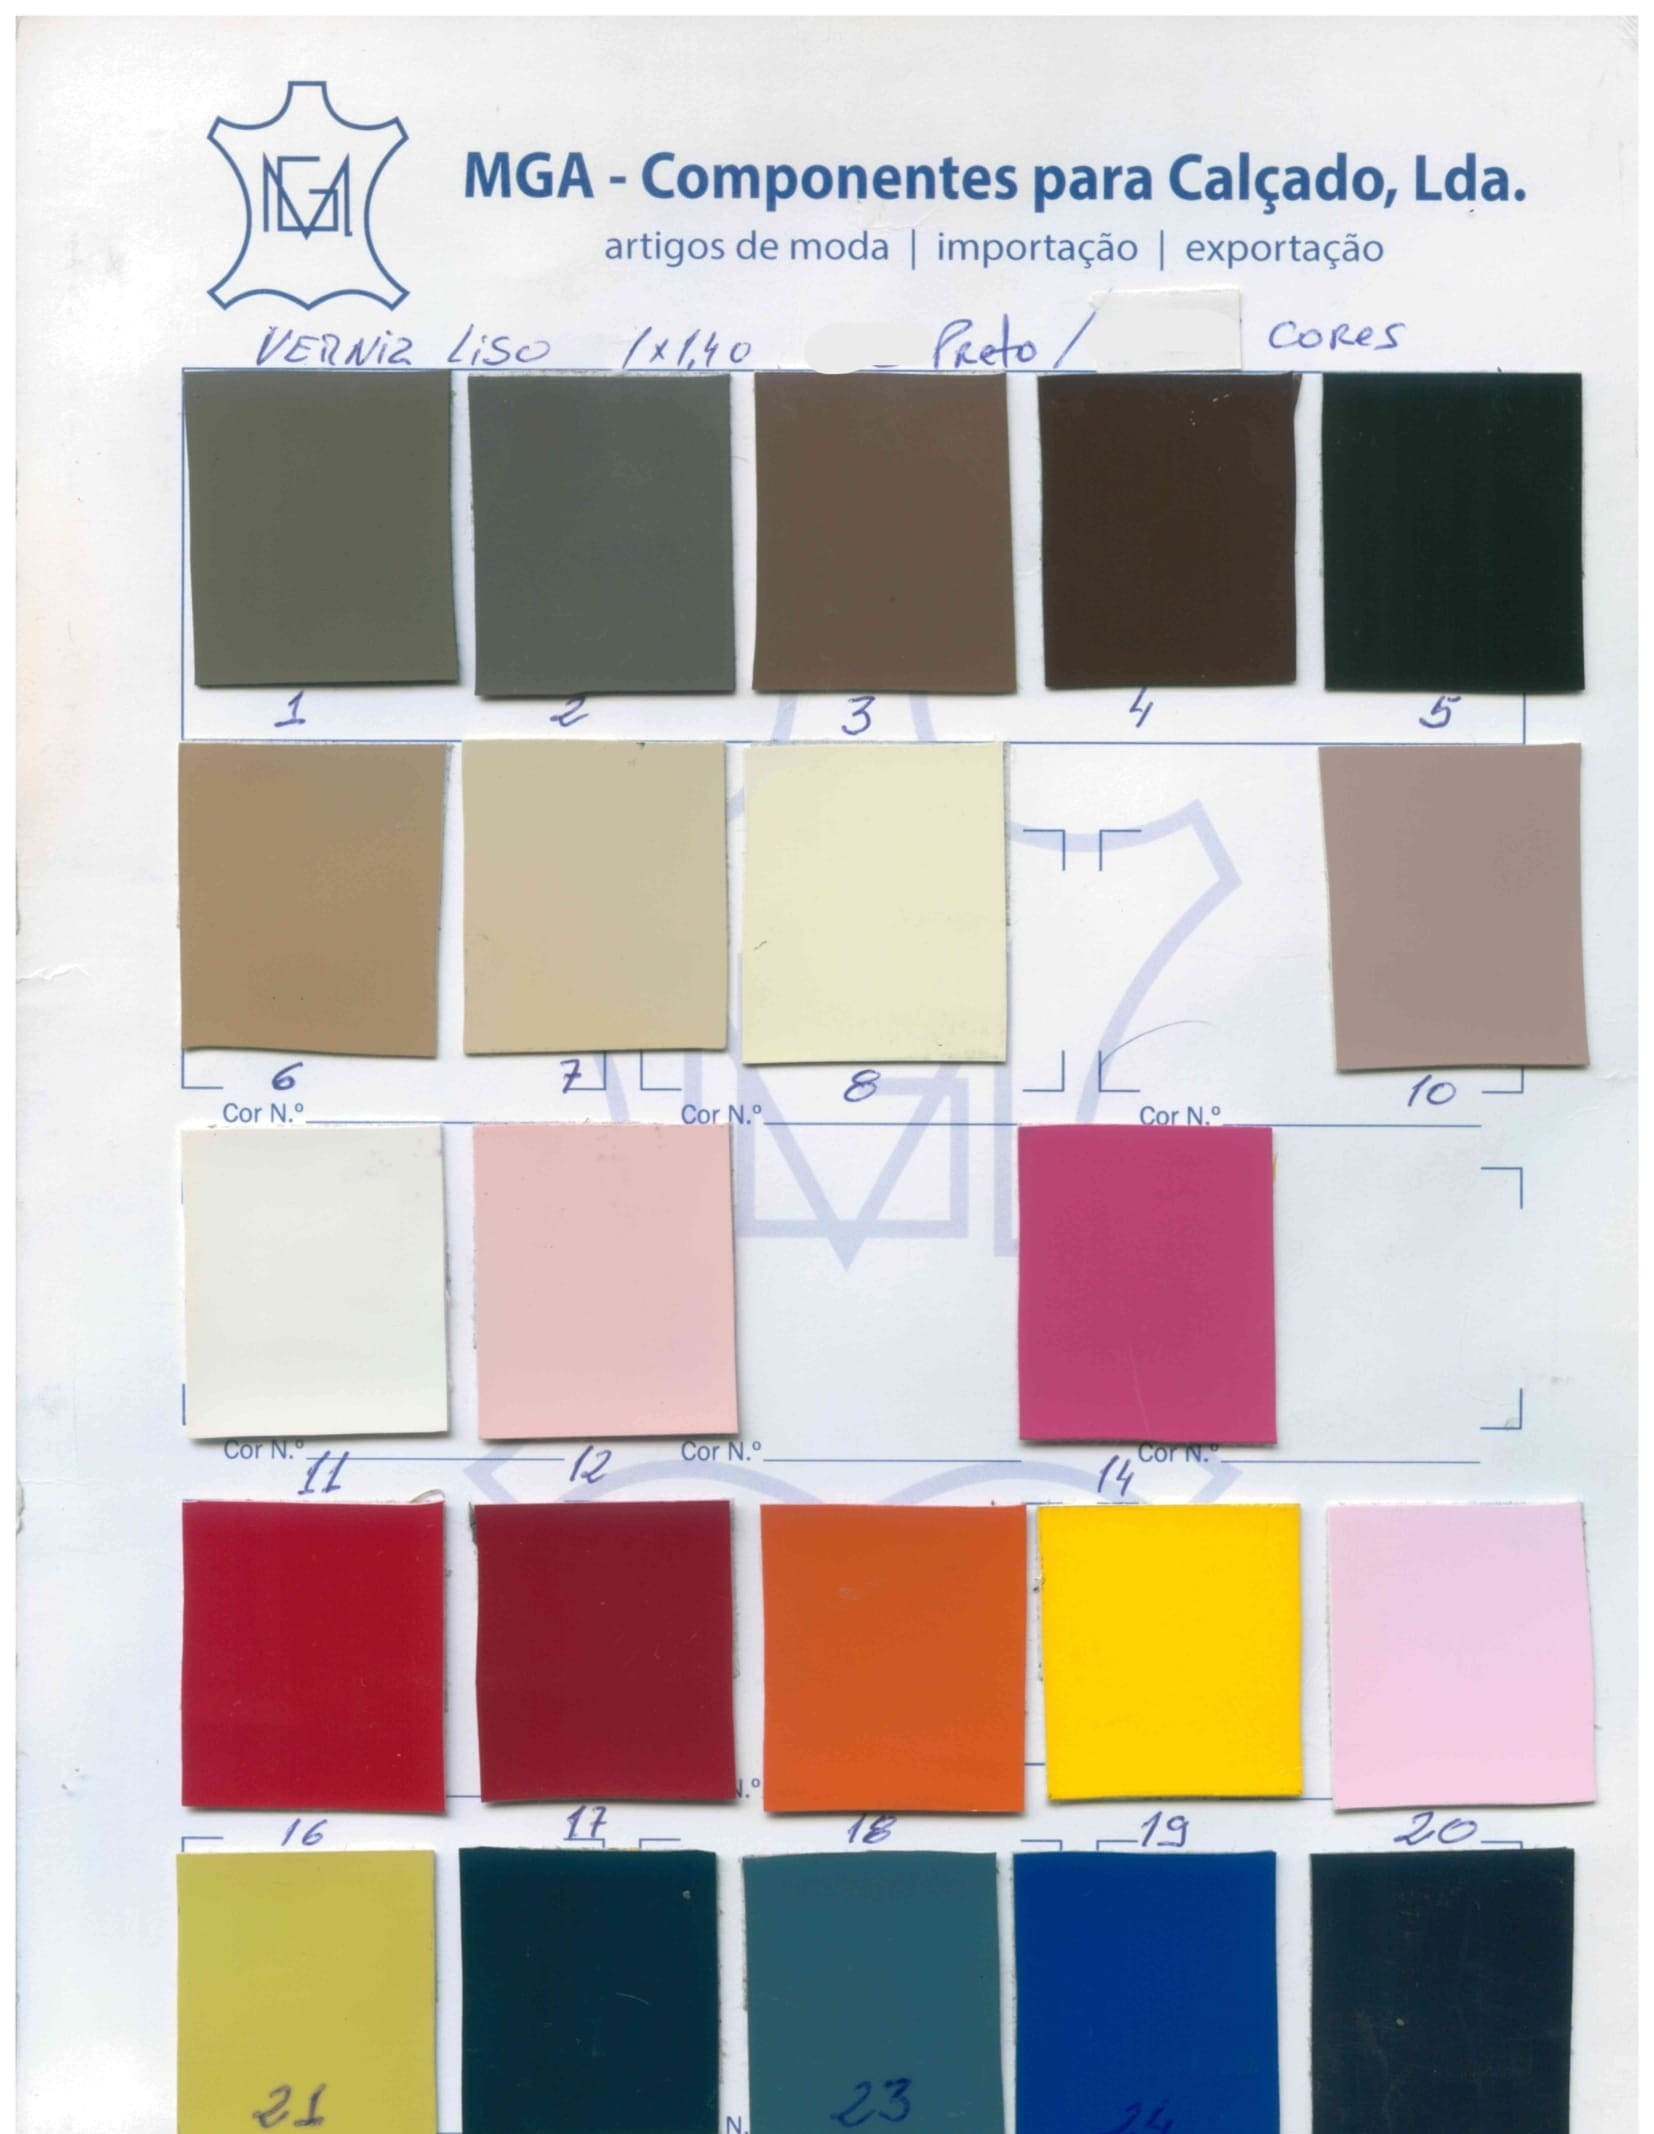 MGA
MGA - Componentes para Calçado, Lda.
artigos de moda | importação | exportação
VERNIZ LiSO 1x1,40 Preto / CORES
1 2 3 4 5
6 7 8 10
Cor N.º Cor N.º Cor N.º
Cor N.º Cor N.º Cor N.º
11 12 14
N.º
16 17 18 19 20
21 23 24
N.